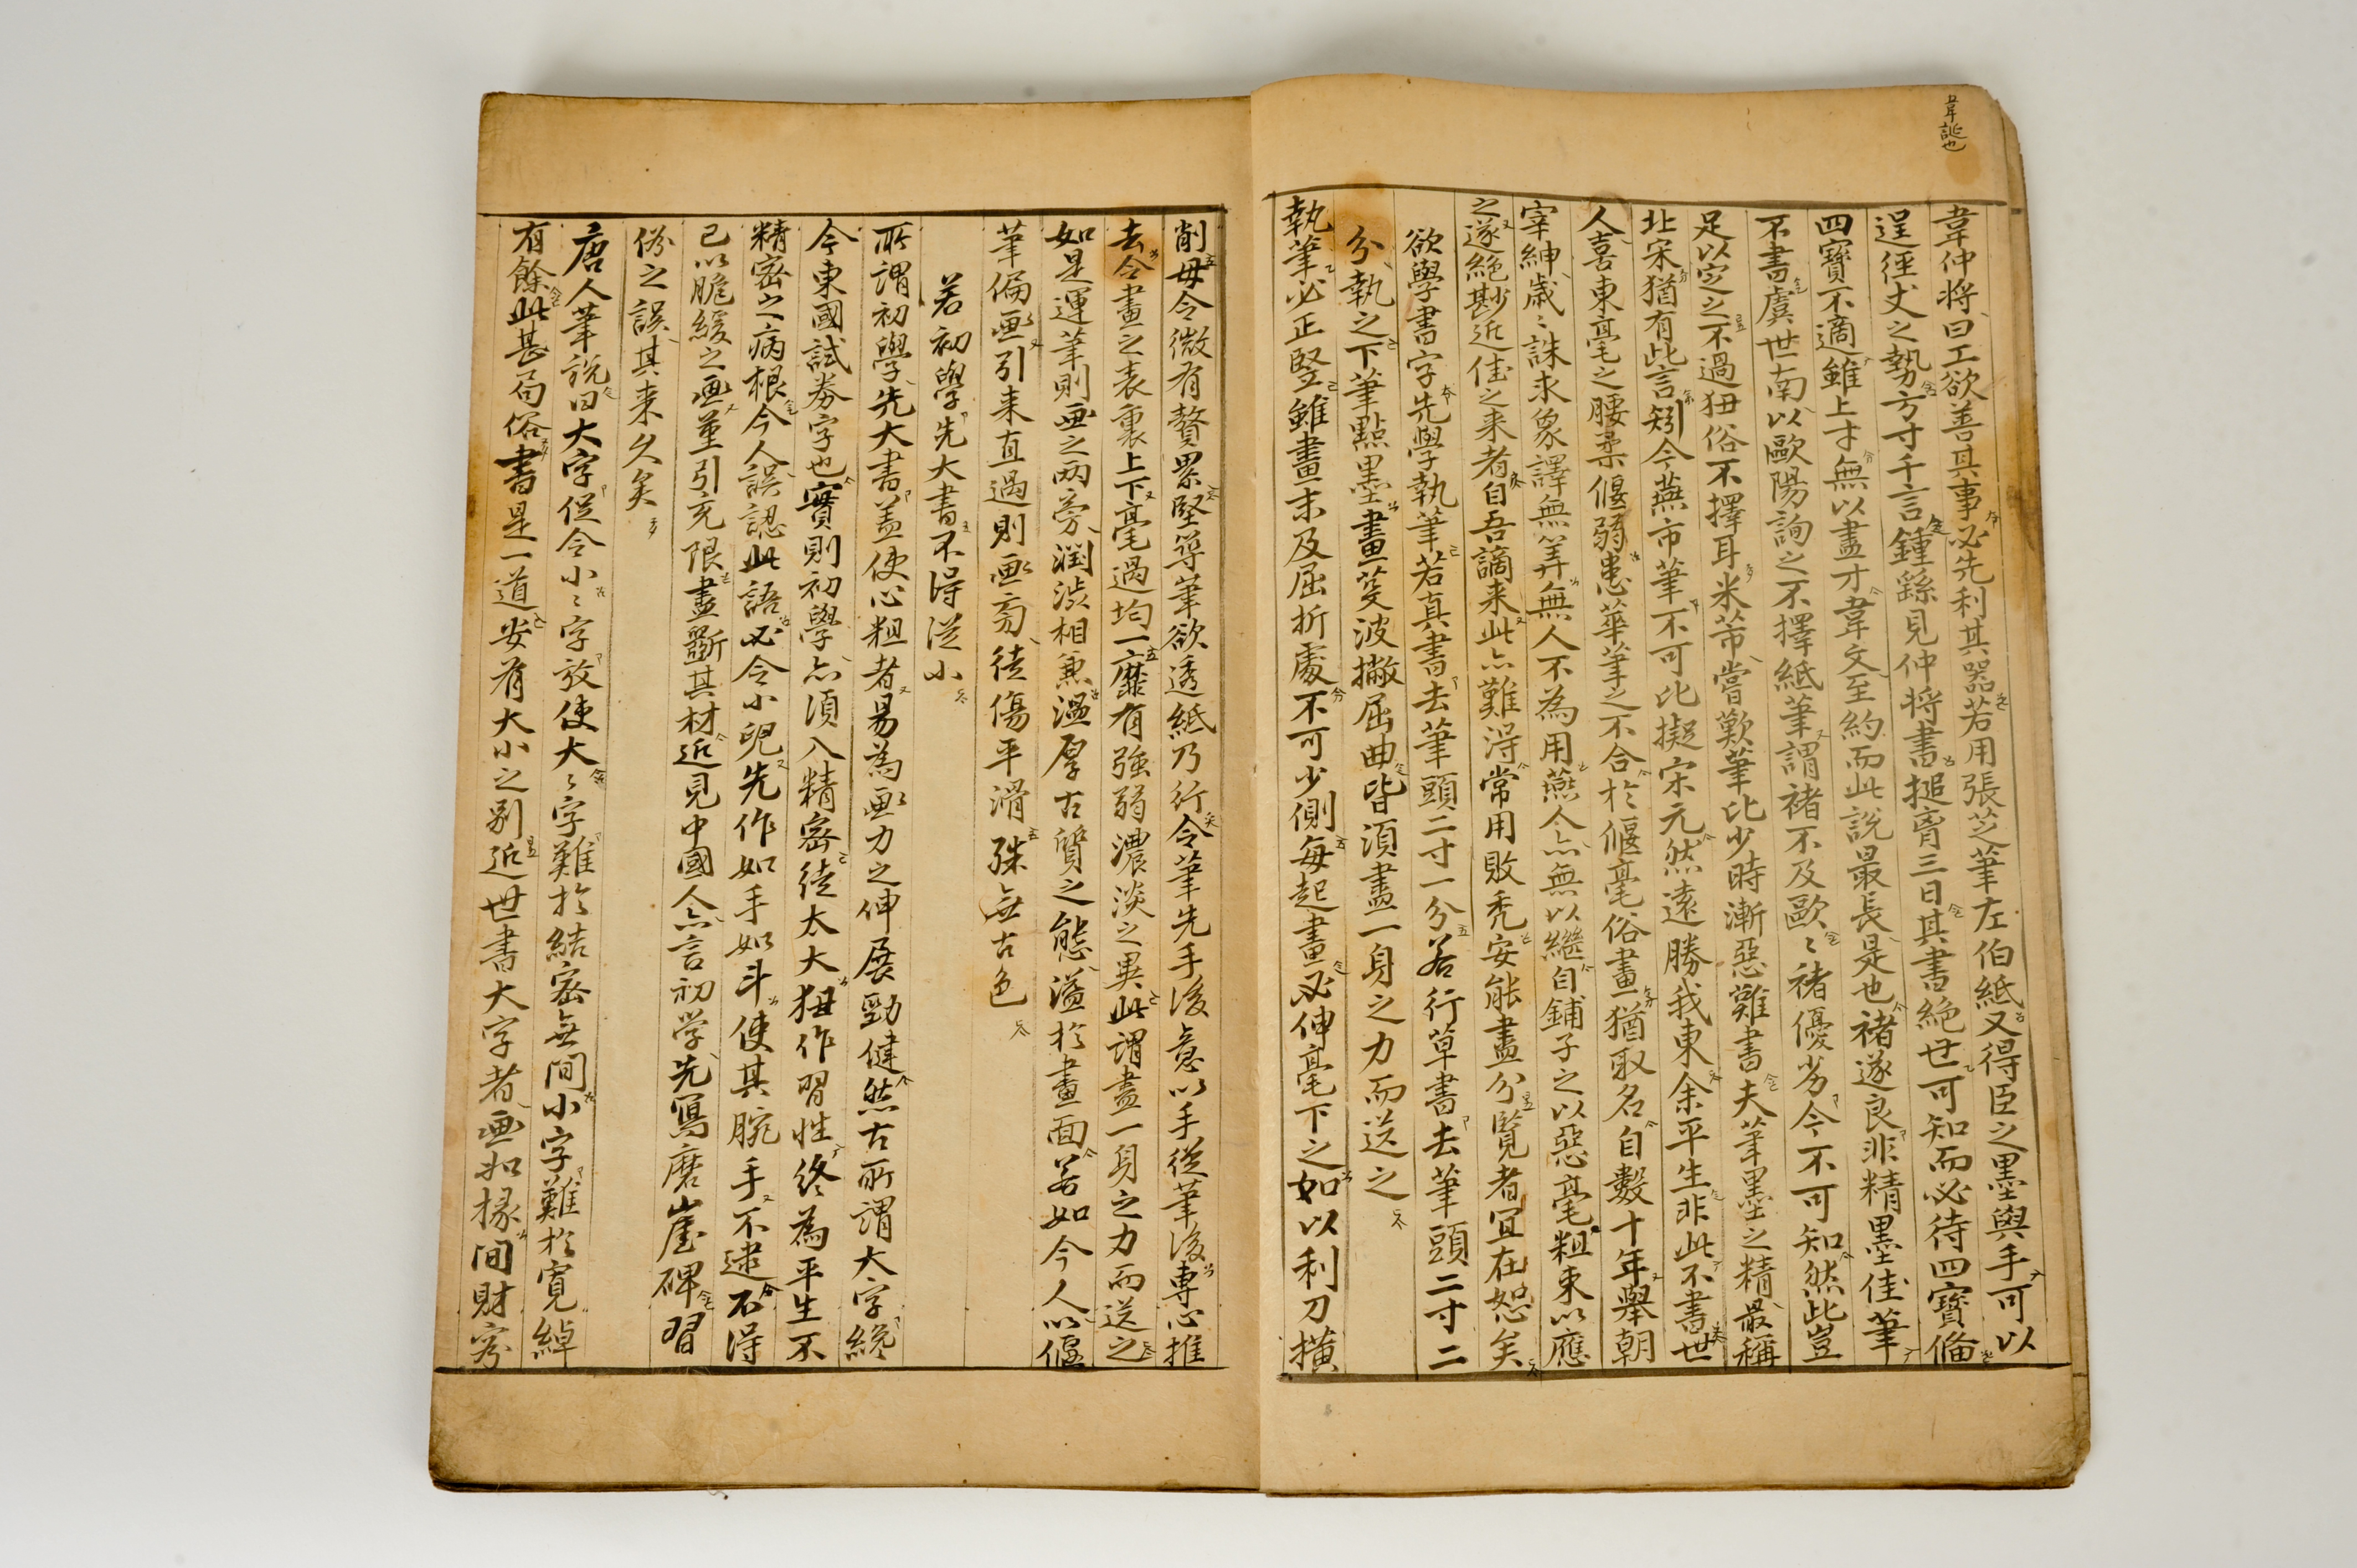 韋誕也
韋仲将曰工欲善其事必先利其器若用張芝筆左伯紙又得臣之墨與手可以
逞徑丈之勢方寸千言鍾繇見仲将書搥胷三日其書絶世可知而必待四寶俻
四寶不適雖上才無以盡才韋文至約而此說最長是也褚遂良非精墨佳筆
不書虞世南以歐陽詢之不擇紙筆謂褚不及歐〻褚優劣今不可知然此豈
足以定之不過狃俗不擇耳米芾嘗歎筆比少時漸惡難書夫筆墨之精最稱
北宋猶有此言矧今燕市筆不可比擬宋元然遠勝我東余平生非此不書世
人喜東毫之腰柔偃弱患華筆之不合於偃毫俗畫猶取名自數十年舉朝
宰紳歲〻誅求象譯無筭無人不為用燕今亦無以繼自鋪子之以惡毫粗束以應
之遂絶尠近佳之来者自吾謫来此亦難淂常用敗禿安能盡分覧者冝在恕矣
欲學書字先學執筆若真書去筆頭二寸一分若行草書去筆頭二寸二
分執之下筆點墨畫芟波撇屈曲皆湏盡一身之力而送之
執筆必正竪雖畫末及屈折處不可少側每起畫必伸毫下之如以利刀橫
削毋令微有贅累堅導筆欲透紙乃行令筆先手後意以手從筆後專心推
去令畫之表裏上下毫過均一靡有強弱濃淡之異此謂盡一身之力而送之
如是運筆則画之両旁潤澁相兼溫厚古質之態溢於畫面若如今人以偃
筆偏画引来直過則画旁徒傷平滑殊無古色
若初學先大書不得從小
所謂初學先大書盖使心粗者易為画力之伸展勁健然古所謂大字纔
今東國試券字也實則初學亦湏入精密徒太大狃作習性終為平生不
精密之病根今人誤認此語必令小兒先作如手如斗使其腕手不逮不得
已以脆緩之画堇引充限盡斵其材近見中國人亦言初学先寫磨崖碑習
俗之誤其来久矣
唐人筆說曰大字促令小〻字放使大〻字難於結密無間小字難於寬綽
有餘此甚局俗書是一道安有大小之别近世書大字者画如椽間財容